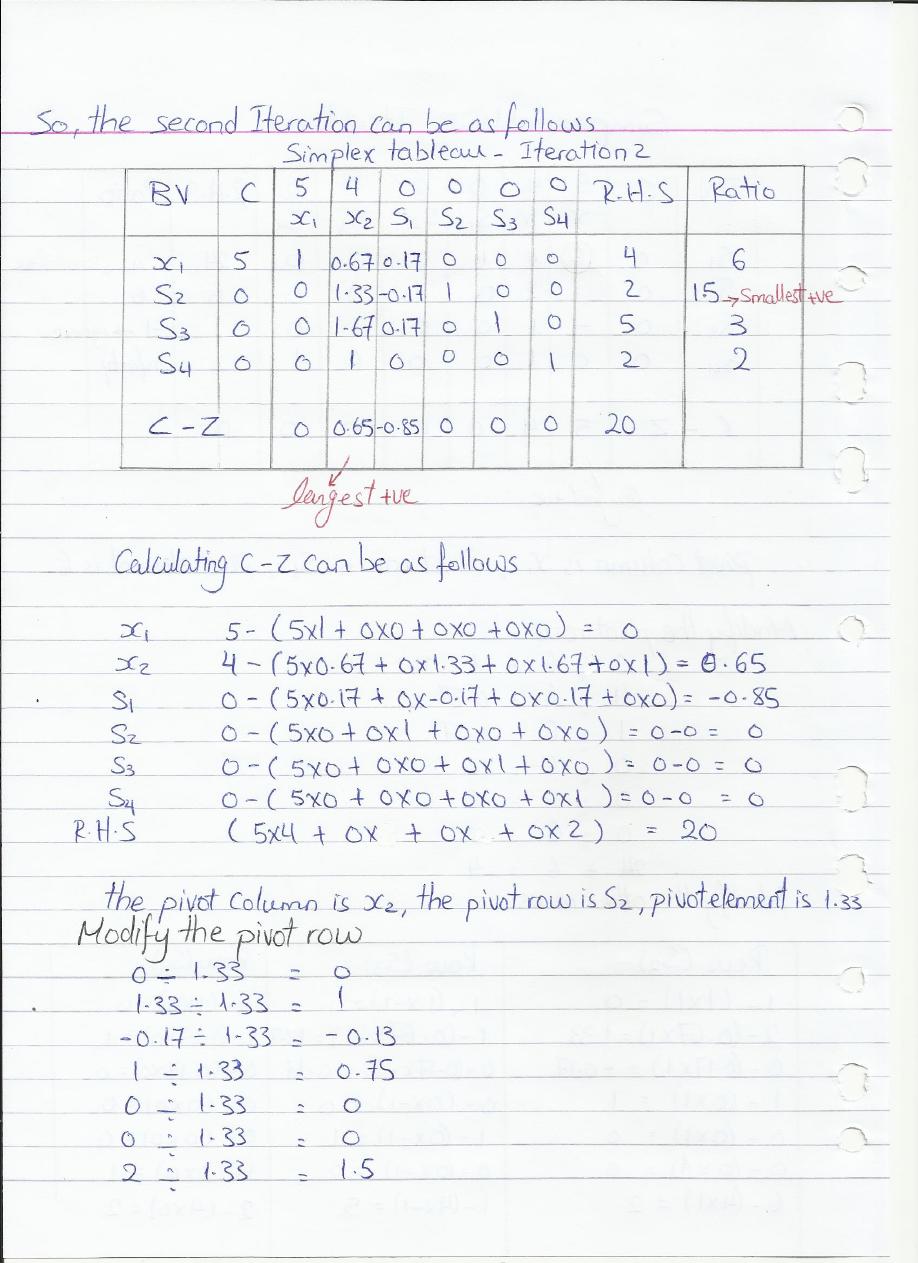 So, the second Iteration can be as follows
Simplex tableau - Iteration 2
BV C 5 4 0 0 0 0 R.H.S Ratio
x₁ x₂ S₁ S₂ S₃ S₄
x₁ 5 1 0.67 0.17 0 0 0 4 6
S₂ 0 0 1.33 -0.17 1 0 0 2 1.5 → Smallest +ve
S₃ 0 0 1.67 0.17 0 1 0 5 3
S₄ 0 0 1 0 0 0 1 2 2
C - Z 0 0.65 -0.85 0 0 0 20
largest +ve
Calculating C-Z can be as follows
x₁ 5 - (5x1 + 0x0 + 0x0 + 0x0) = 0
x₂ 4 - (5x0.67 + 0x1.33 + 0x1.67 + 0x1) = 0.65
S₁ 0 - (5x0.17 + 0x-0.17 + 0x0.17 + 0x0) = -0.85
S₂ 0 - (5x0 + 0x1 + 0x0 + 0x0) = 0-0 = 0
S₃ 0 - (5x0 + 0x0 + 0x1 + 0x0) = 0-0 = 0
S₄ 0 - (5x0 + 0x0 + 0x0 + 0x1) = 0-0 = 0
R.H.S (5x4 + 0x + 0x + 0x2) = 20
the pivot Column is x₂, the pivot row is S₂, pivot element is 1.33
Modify the pivot row
0 ÷ 1.33 = 0
1.33 ÷ 1.33 = 1
-0.17 ÷ 1.33 = -0.13
1 ÷ 1.33 = 0.75
0 ÷ 1.33 = 0
0 ÷ 1.33 = 0
2 ÷ 1.33 = 1.5